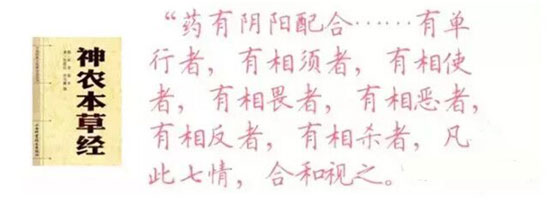 神农本草经
“药有阴阳配合……有单
行者，有相须者，有相使
者，有相畏者，有相恶者，
有相反者，有相杀者，凡
此七情，合和视之。